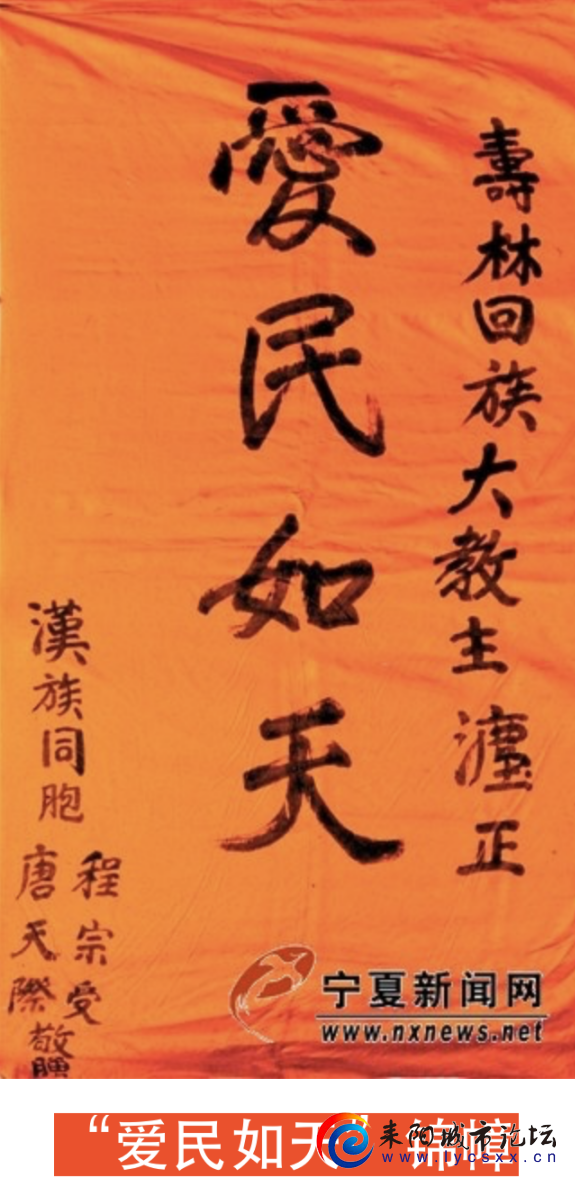 壽林回族大教主 正
愛民如天
漢族同胞
程宗受
唐天際
敬贈
宁夏新闻网
www.nxnews.net
“爱民如天”锦幛
耒阳城市论坛
www.lysxx.cn